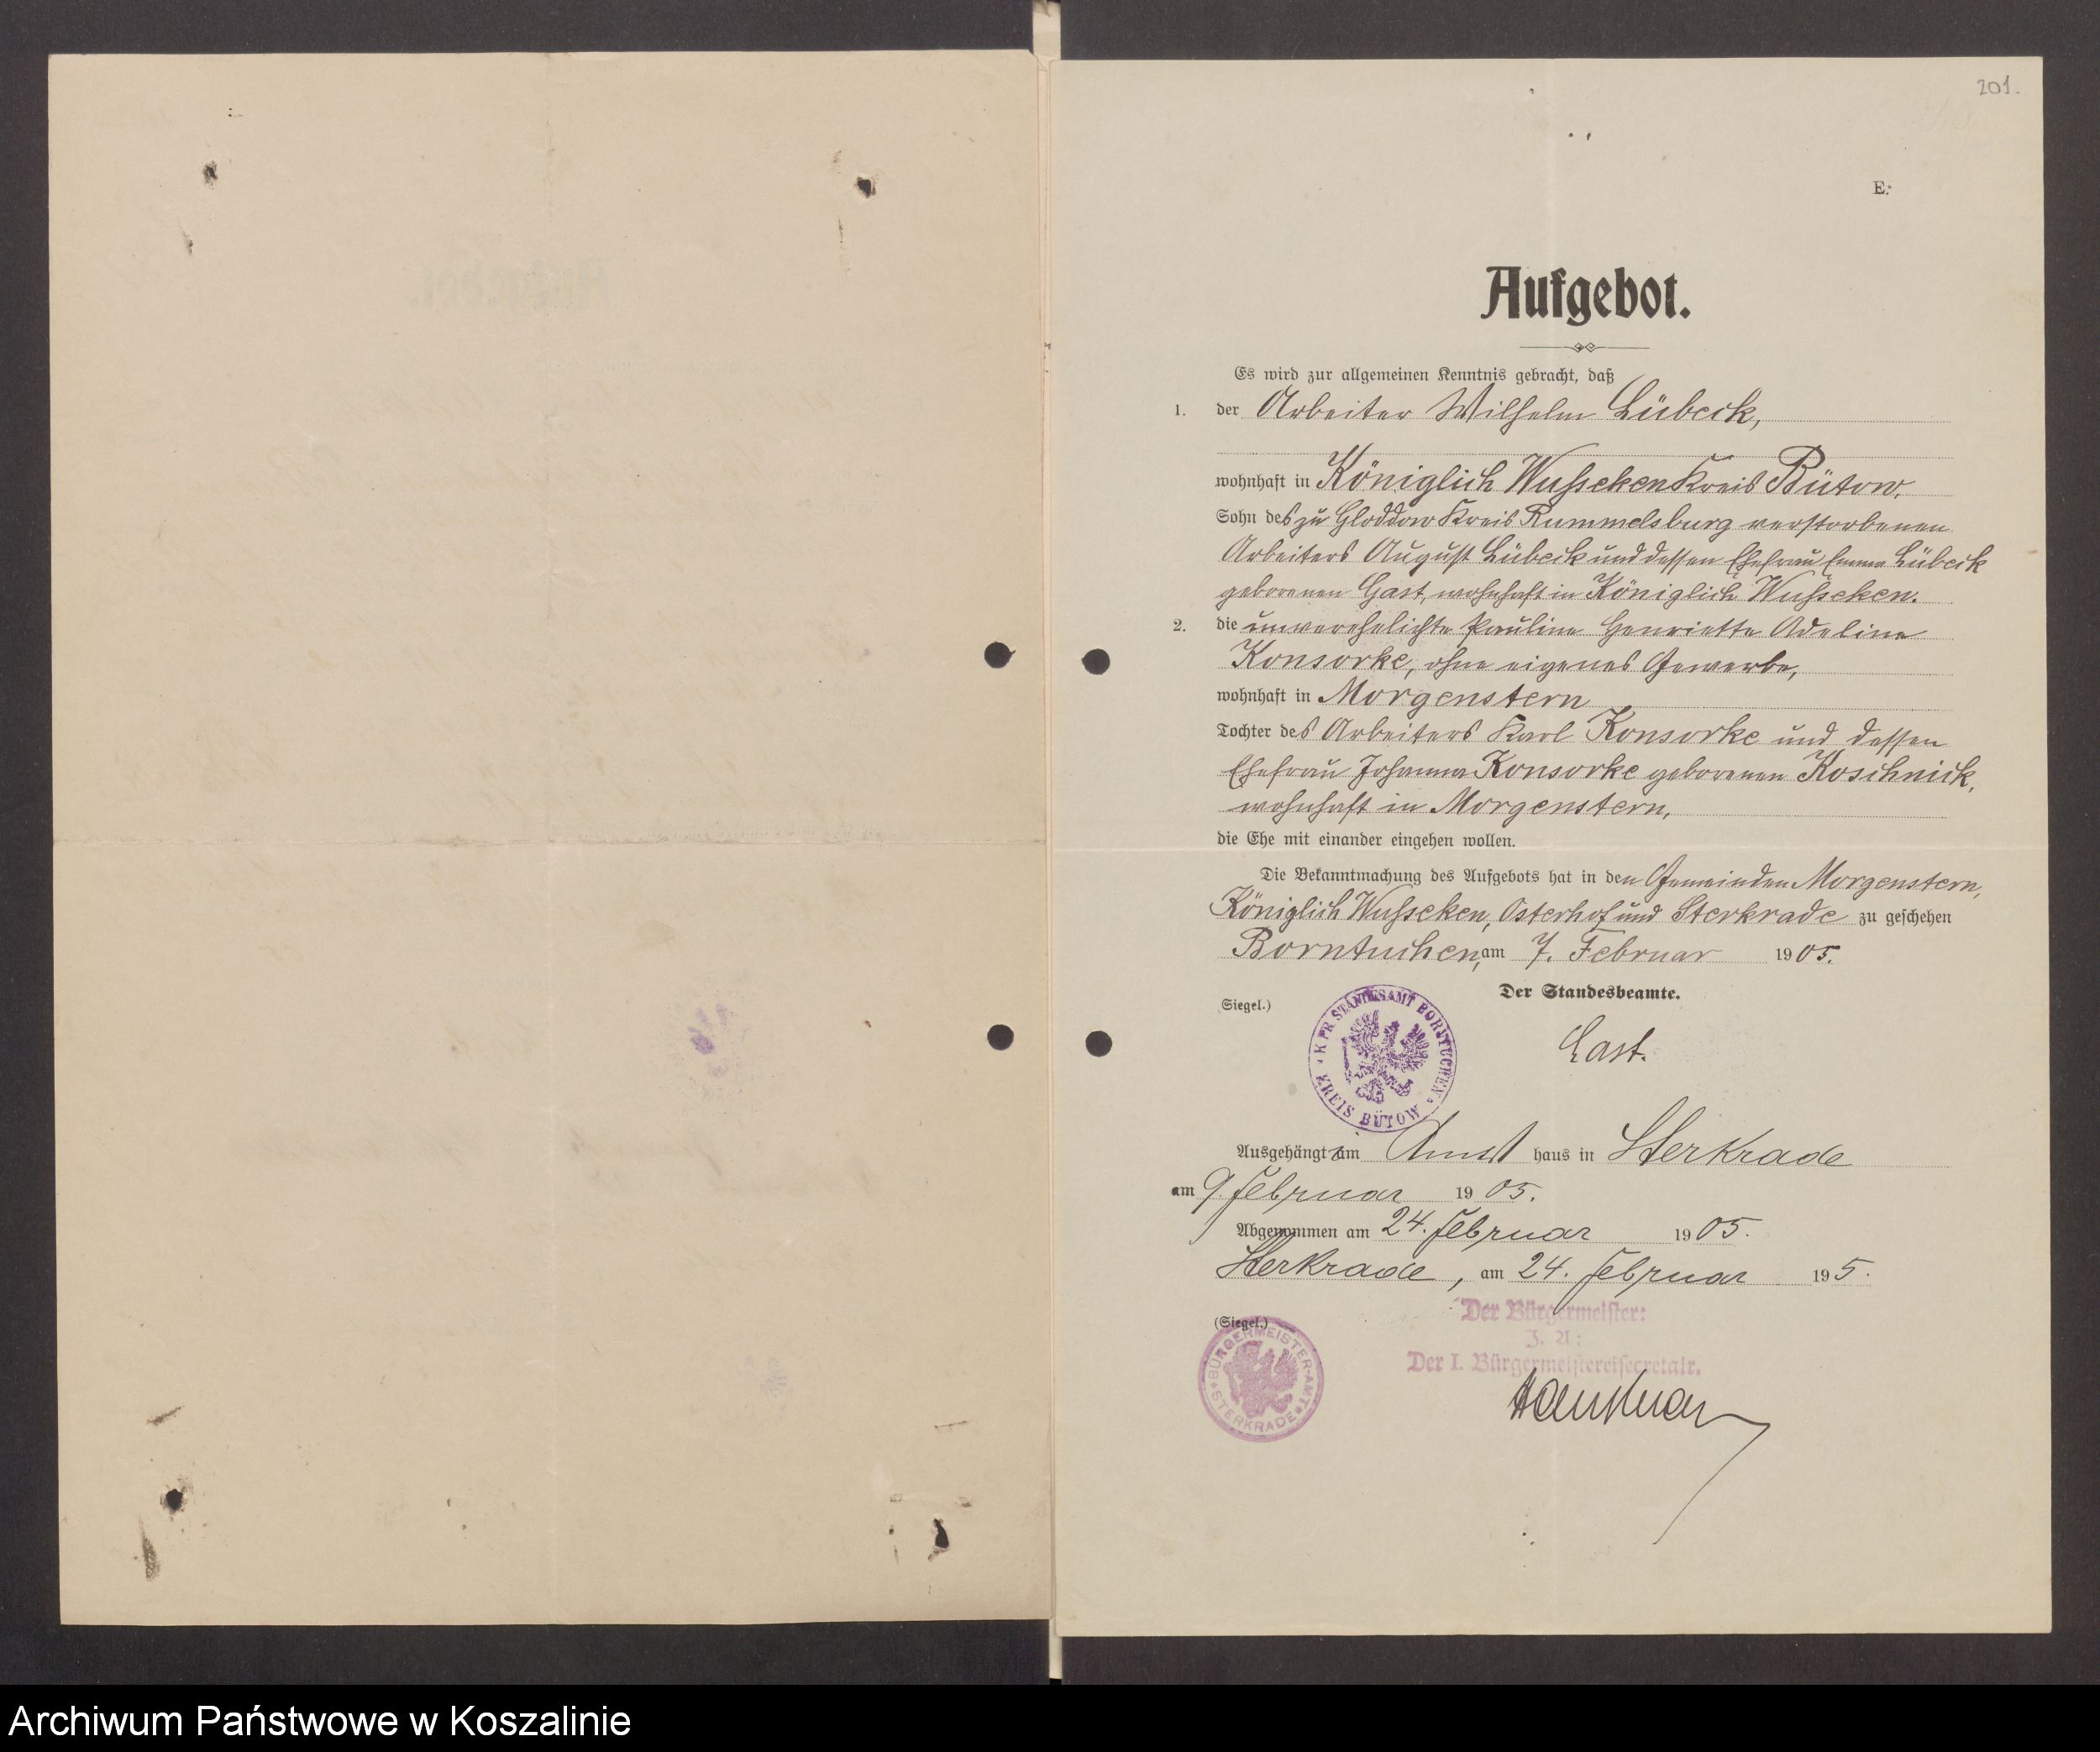 201.
E.
Aufgebot.
Es wird zur allgemeinen Kenntnis gebracht, daß
1. der Arbeiter Wilhelm Lübeck,
wohnhaft in Königlich Wusseken Kreis Bütow,
Sohn des zu Gloddow Kreis Rummelsburg verstorbenen
Arbeiters August Lübeck und dessen Ehefrau Emma Lübeck
geborenen Gast, wohnhaft in Königlich Wusseken.
2. die unverehelichte Pauline Henriette Adeline
Konsorke, ohne eigenes Gewerbe,
wohnhaft in Morgenstern
Tochter des Arbeiters Karl Konsorke und dessen
Ehefrau Johanna Konsorke geborenen Koschnick,
wohnhaft in Morgenstern,
die Ehe mit einander eingehen wollen.
Die Bekanntmachung des Aufgebots hat in den Gemeinden Morgenstern,
Königlich Wusseken, Osterhof und Sterkrade zu geschehen
Borntuchen, am 7. Februar 1905.
Der Standesbeamte.
(Siegel.)
K. PR. STANDESAMT BORNTUCHEN
KREIS BÜTOW
Ausgehängt im Amts haus in Sterkrade
am 9. Februar 1905.
Abgenommen am 24. Februar 1905.
Sterkrade, am 24. Februar 195.
(Siegel.)
Der Bürgermeister:
J. A.:
Der I. Bürgermeistereisecretair.
BÜRGERMEISTER-AMT
STERKRADE
Archiwum Państwowe w Koszalinie